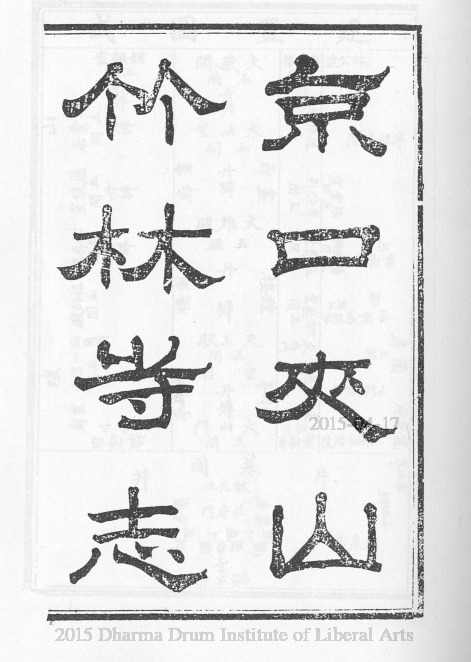 京口夾山
竹林寺志
2015-04-17
2015 Dharma Drum Institute of Liberal Arts